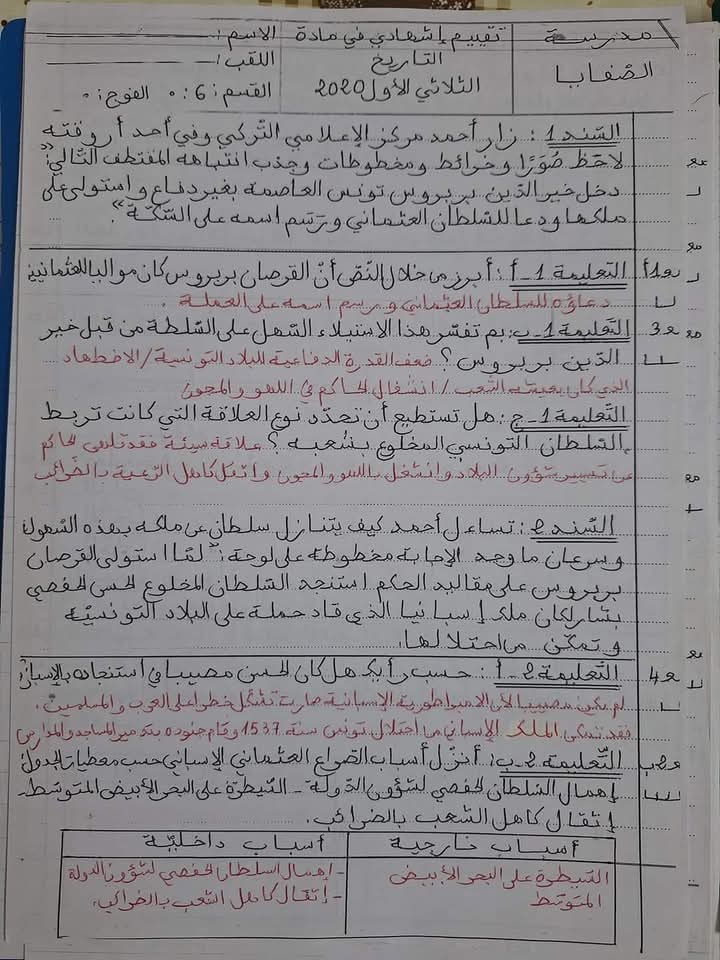 مدرسة
الصفايا
تقييم إشهادي في مادة
التاريخ
الثلاثي الأول 2020
الاسم:
اللقب:
القسم: 6: الفوج:
السّند 1: زار أحمد مركز الإعلامي التّركي وفي أحد أروقته
لاحظ صُوَرًا وخرائط ومخطوطات وجذب انتباهه المقتطف التّالي: "
دخل خير الدّين بربروس تونس العاصمة بغير دفاع واستولى على
ملكها ودعا للسّلطان العثماني ورسم اسمه على السّكّة".
التّعليمة 1-أ: أبرز من خلال النّص أنّ القرصان بربروس كان مواليا للعثمانيين
دعاؤه للسلطان العثماني ورسم اسمه على العملة.
التّعليمة 1-ب: بم تفسّر هذا الاستيلاء السّهل على السّلطة من قبل خير
الدّين بربروس؟ ضعف القدرة الدفاعية للبلاد التونسية / الاضطهاد
الذي كان يعيشه الشّعب / انشغال الحاكم في اللهو والمجون
التّعليمة 1-ج: هل تستطيع أن تحدّد نوع العلاقة التي كانت تربط
السّلطان التونسي المخلوع بشعبه؟ علاقة سيئة فقد تلهى الحاكم
عن تسيير شؤون البلاد وانشغل باللهو والمجون وأثقل كاهل الرّعية بالضّرائب
السّند 2: تساءل أحمد كيف يتنازل سلطان عن ملكه بهذه السّهولة
وسرعان ما وجد الإجابة مخطوطة على لوحة: "لمّا استولى القرصان
بربروس على مقاليد الحكم استنجد السّلطان المخلوع الحسن الحفصي
بشارلكان ملك إسبانيا الذي قاد حملة على البلاد التونسيّة
وتمكّن من احتلالها.
التّعليمة 2-أ: حسب رأيك هل كان الحسن مصيبا في استنجاده بالإسبان؟
لم يكن مصيبا لأن الامبراطورية الإسبانية صارت تشكّل خطرا على العرب والمسلمين.
فقد تمكّن الملك الإسباني من احتلال تونس سنة 1537 وقام جنوده بتدمير المساجد والمدارس
التّعليمة 2-ب: أنزّل أسباب الصّراع العثماني الإسباني حسب معطيات الجدول:
إهمال السّلطان الحفصي لشؤون الدّولة - السّيطرة على البحر الأبيض المتوسّط -
إثقال كاهل الشّعب بالضّرائب.
أسباب خارجية
أسباب داخليّة
السّيطرة على البحر الأبيض
المتوسّط
- إهمال السلطان الحفصي لشؤون الدّولة
- إثقال كاهل الشّعب بالضّرائب.